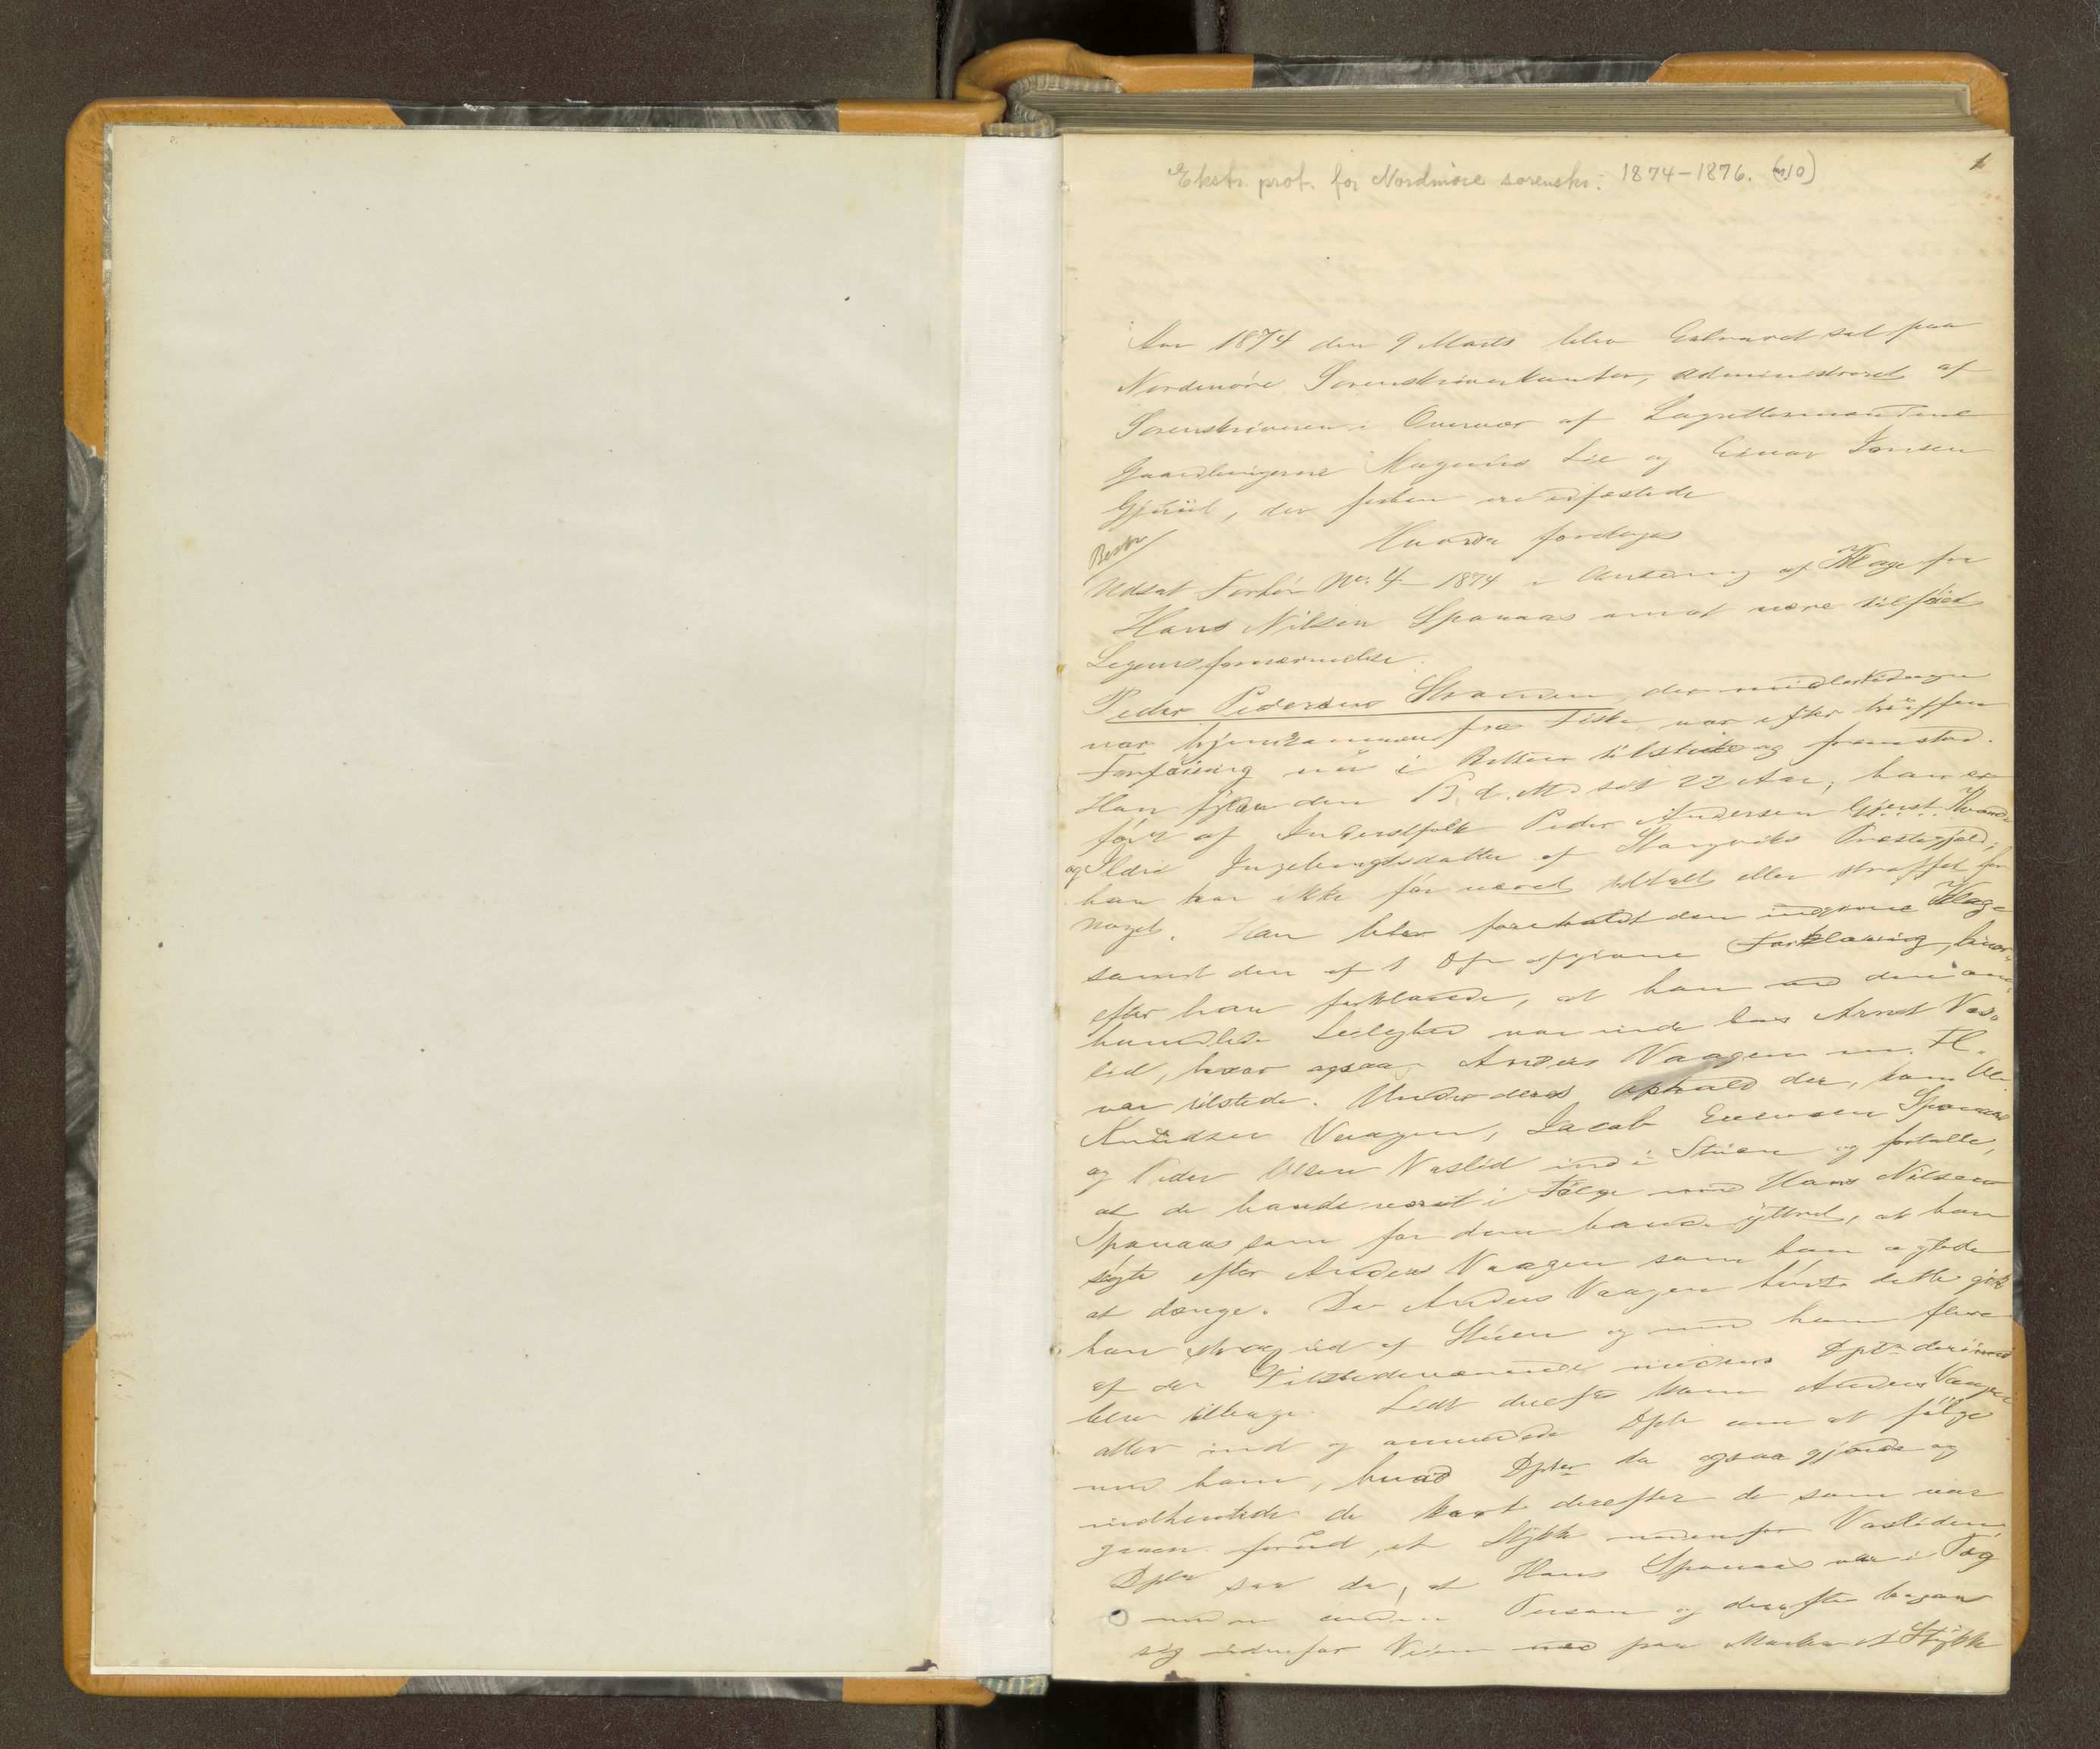 Ekstr. prot. for Nordmøre sorenskr. 1874-1876. (10)
1
Aar 1874 den 9 Marts blev Extraret sat paa
Nordmøre Sorenskriverkontor, administreret af
Sorenskriveren i Overvær af Lagrettesmændene
Gaardbrugerne Magnus Lie og Einar Jonsen
, der forhen ere edfæstede
Hvorda foretoges
Besk
Udsat Forhör No. 4 1874 i Anledning af Klage fra
Hans Nilsen Spanaas om at være tilföiet
Legemsfornærmelse.
Peder Pedersen Strømmen, der midlertidigen
var hjemkommen fra Fiske, var efter truffen
Forföining nu i Retten tilstede og fremstod.
Han fylder den 13 d. M. sit 22 Aar; han er
född af Inderstfolk Peder Andersen Kvande
og Ildri Ingebrigtsdatter af Stangviks Præstegjeld;
han har ikke för været tiltalt eller straffet for
noget. Han blev foreholdt den indkomne Klage
samt den af 1 Dpt afgivne Forklaring, hvor-
efter han forklarede, at han ved den om-
handlede Leilighed var inde hos Arnt Vas-
lid, hvor ogsaa Anders Vaagen m. Fl.
var tilstede. Under deres Ophold der, kom Ole
Knudsen Vaagen, Jacob Evensen Spanaas
og Peder Olsen Vaslid ind i Stuen og fortalte,
at de havde været i Følge med Hans Nilsen
Spanaas som for dem havde yttret, at han
sögte efter Anders Vaagen som han agtede
at dænge. Da Anders Vaagen hörte dette gik
han strax ud af Stuen og med ham flere
af de Tilstedeværende medens Dpt derinde
blev tilbage. Lidt derefter kom Anders Vaagen
atter ind og anmodede Dpt om at fölge
med ham, hvad Dpt da ogsaa gjorde og
indhentede de kort derefter de som var
gaaen forud, et Stykke nedenfor Vasliden.
Dpt saa da, at Hans Spanaas var i Tag
med en anden Person og derefter begav
sig udenfor Veien ned paa Marken et Stykke